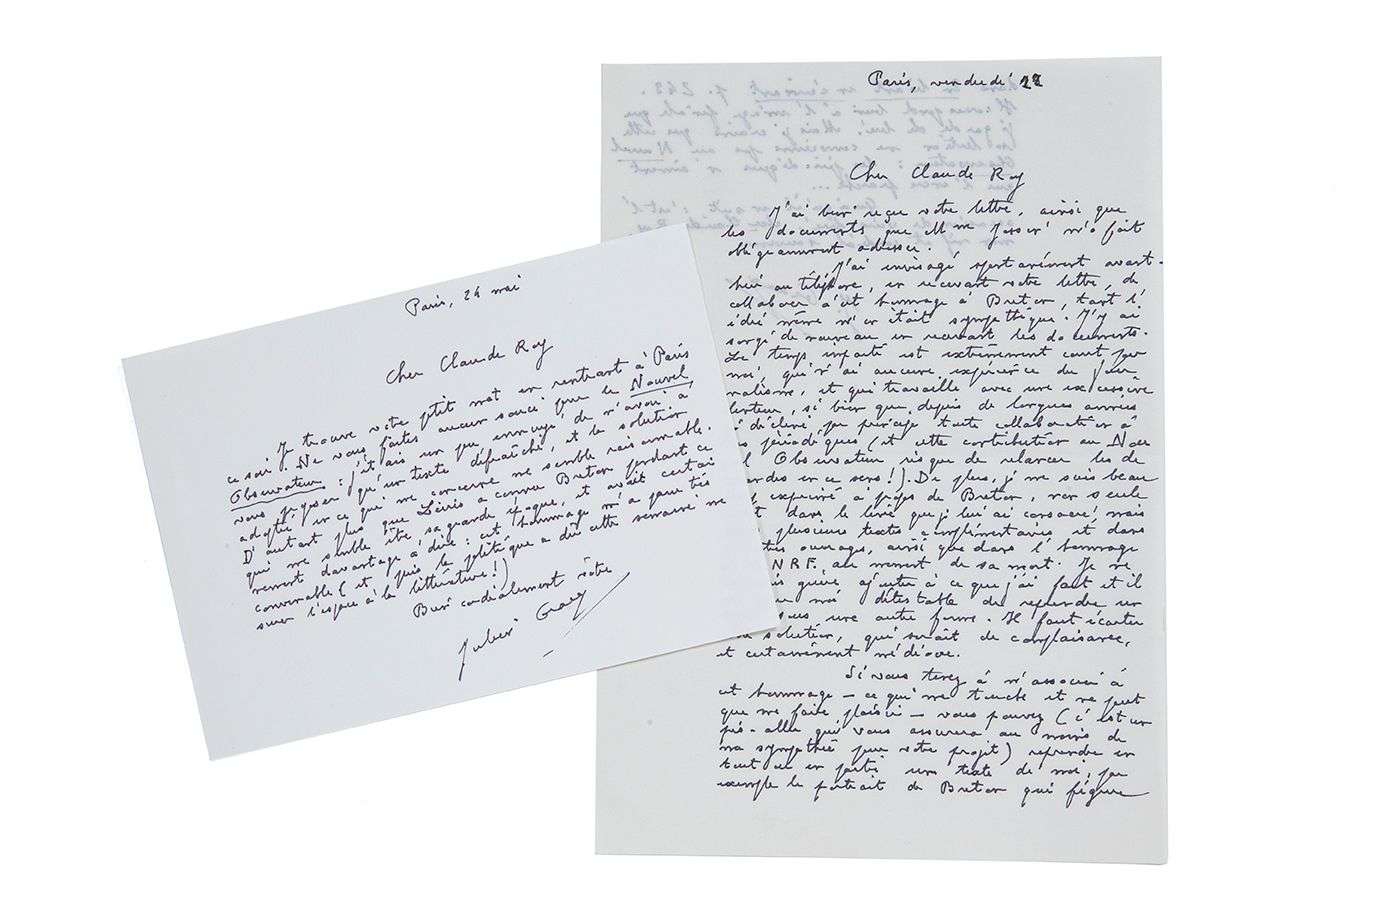 Paris, 24 mai
Cher Claude Roy
Je trouve votre petit mot en rentrant à Paris
ce soir. Ne vous faites aucun souci pour le Nouvel
Observateur : j'étais un peu ennuyé de n'avoir à
vous proposer qu'un texte défraîché, et la solution
adoptée en ce qui me concerne me semble raisonnable.
D'autant plus que Leiris a connu Breton pendant ce
qui me semble être sa grande époque, et avait certai
nement davantage à dire : cet hommage m'a paru très
convenable (et puis la politique a dû cette semaine me
surer l'espace à la littérature !)
Bien cordialement vôtre
Julien Gracq
Paris, vendredi 22
Cher Claude Roy
J'ai bien reçu votre lettre, ainsi que
les documents que Mme m'a fait
obligeamment adresser.
J'ai envisagé spontanément avant-
hier au téléphone, en recevant votre lettre, de
collaborer à cet hommage à Breton, tant l'
idée même m'en était sympathique. J'y ai
songé de nouveau en recevant les documents.
Le temps imparti est extrêmement court pour
moi, qui n'ai aucune expérience du jour
nalisme, et qui travaille avec une excessive
lenteur, si bien que, depuis de longues années
j'ai décliné par principe toute collaboration à
des périodiques (et cette contribution au Nou
vel Observateur risque de relancer les de
mandes en ce sens !). De plus, je me suis beau
exprimé à propos de Breton, non seule
dans le livre que je lui ai consacré mais
plusieurs textes complémentaires et dans
autres ouvrages, ainsi que dans l'hommage
N.R.F. au moment de sa mort. Je ne
guère ajouter à ce que j'ai fait et il
moi détestable de reprendre un
sous une autre forme. Il faut écarter
solution, qui serait de complaisance,
et certainement médiocre.
Si vous tenez à m'associer à
cet hommage — ce qui me touche et ne peut
que me faire plaisir — vous pouvez (c'est un
pis-aller qui vous assurera au moins de
ma sympathie pour votre projet) reprendre en
tout ou en partie un texte de moi, par
exemple le portrait de Breton qui figure